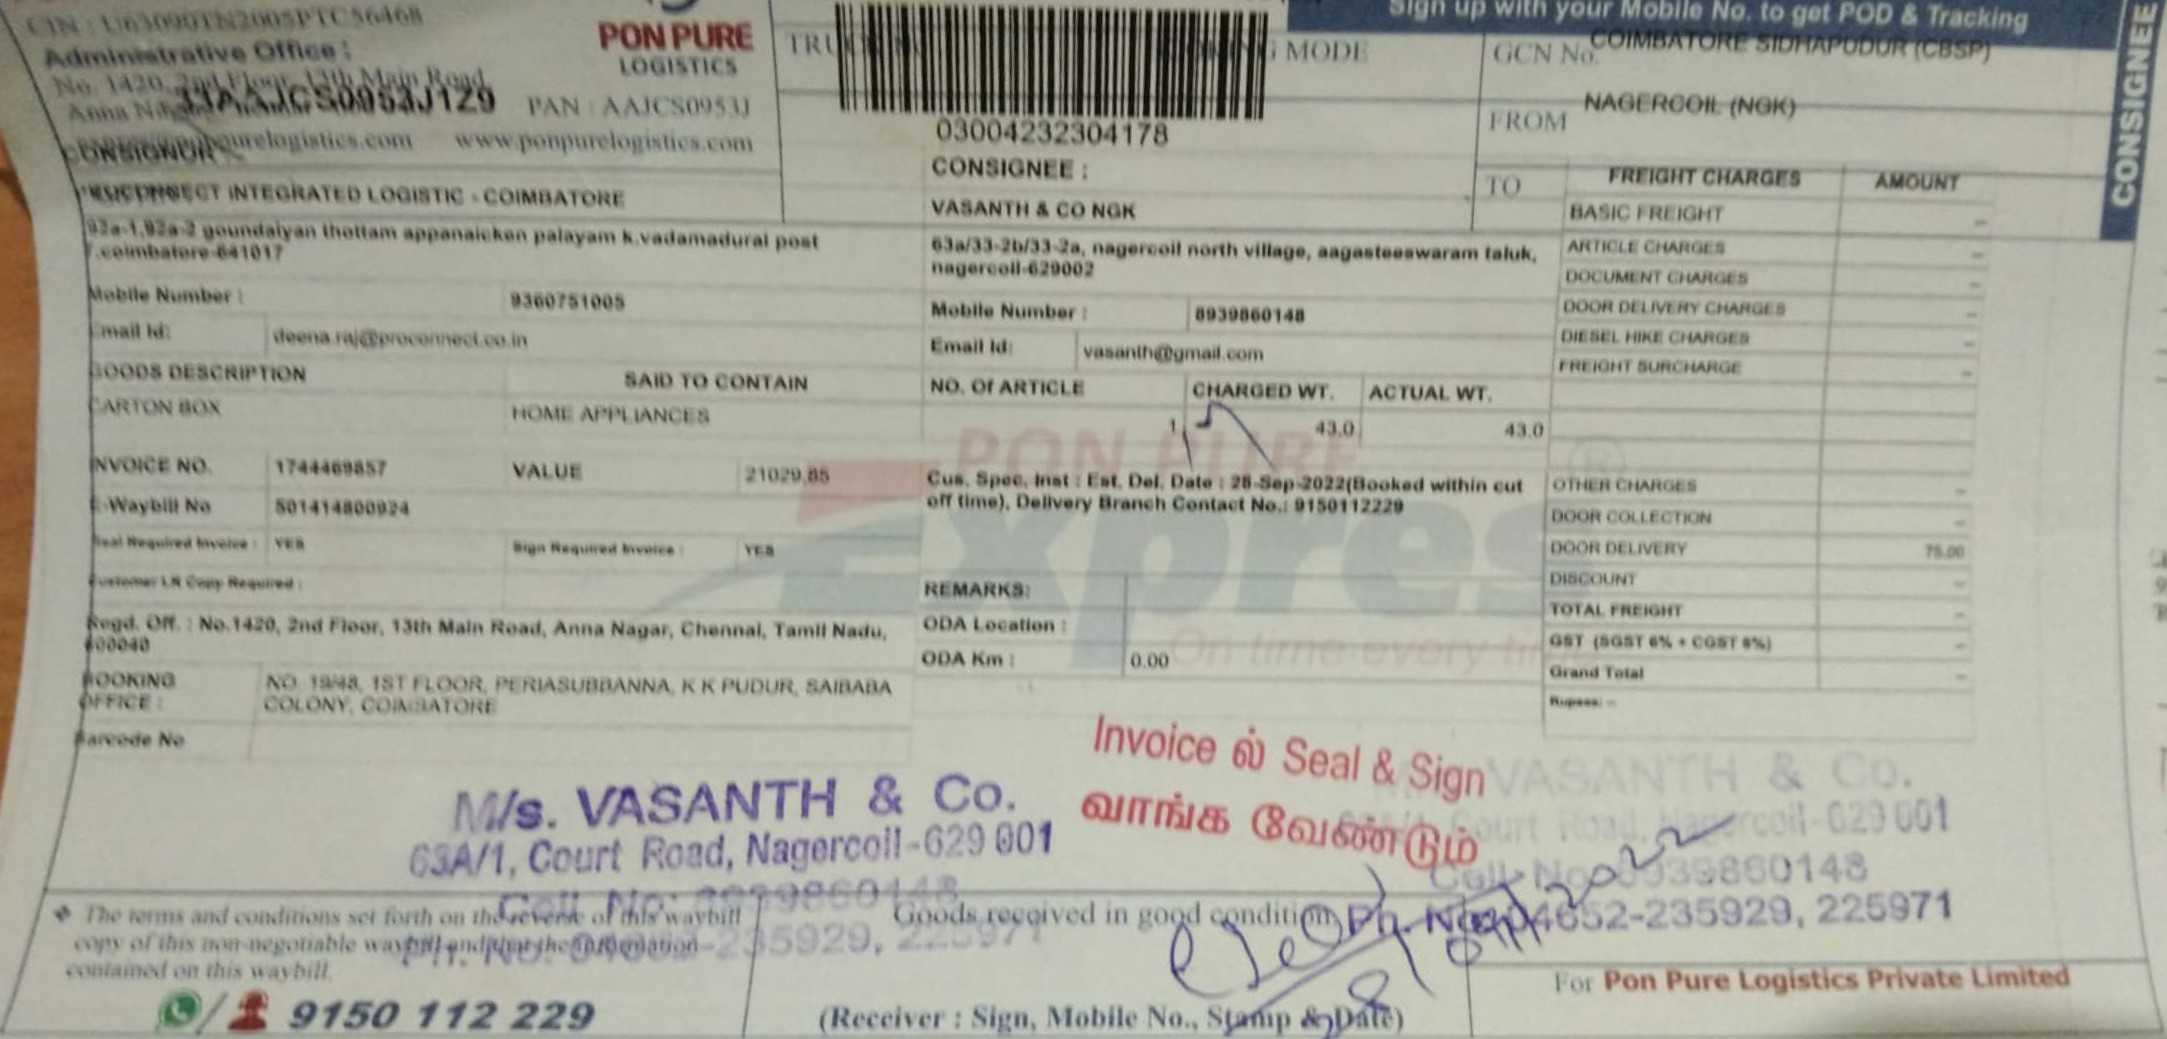 CIN : U63090TN2005PTC56468
Administrative Office :
No. 1420, 2nd Floor, 13th Main Road,
Anna
33AAJCS0953J1Z9 PAN : AAJCS0953J
www.ponpurelogistics.com
PON PURE
LOGISTICS
03004232304178
MODE
Sign up with your Mobile No. to get POD & Tracking
GCN No. COIMBATORE SIDHAPUDUR (CBSP)
FROM NAGERCOIL (NGK)
TO
CONSIGNEE
CONSIGNOR
INTEGRATED LOGISTIC - COIMBATORE
93a-1,92a-2 goundaiyan thottam appanaicken palayam k.vadamadurai post
coimbatore-641017
Mobile Number : 9360751005
Email Id: deena.raj@proconnect.co.in
GOODS DESCRIPTION SAID TO CONTAIN
CARTON BOX HOME APPLIANCES
INVOICE NO. 1744469857 VALUE 21029.85
E-Waybill No 501414800924
Seal Required Invoice : YES Sign Required Invoice : YES
Customer LR Copy Required :
Regd. Off. : No.1420, 2nd Floor, 13th Main Road, Anna Nagar, Chennai, Tamil Nadu,
600040
BOOKING OFFICE : NO. 19/48, 1ST FLOOR, PERIASUBBANNA, K K PUDUR, SAIBABA
COLONY, COIMBATORE
Barcode No
CONSIGNEE :
VASANTH & CO NGK
63a/33-2b/33-2a, nagercoil north village, aagasteeswaram taluk,
nagercoil-629002
Mobile Number : 8939860148
Email Id: vasanth@gmail.com
NO. Of ARTICLE CHARGED WT. ACTUAL WT.
1 43.0 43.0
Cus. Spec. Inst : Est. Del. Date : 28-Sep-2022(Booked within cut
off time), Delivery Branch Contact No.: 9150112229
REMARKS:
ODA Location :
ODA Km : 0.00
PON PURE
Express
On time every
FREIGHT CHARGES AMOUNT
BASIC FREIGHT -
ARTICLE CHARGES -
DOCUMENT CHARGES -
DOOR DELIVERY CHARGES -
DIESEL HIKE CHARGES -
FREIGHT SURCHARGE -
OTHER CHARGES -
DOOR COLLECTION -
DOOR DELIVERY 75.00
DISCOUNT -
TOTAL FREIGHT -
GST (SGST 6% + CGST 6%) -
Grand Total -
Rupees: -
M/s. VASANTH & Co.
63A/1, Court Road, Nagercoil-629 001
Cell No: 8939860148
Ph. No: 04652-235929, 225971
Invoice ல் Seal & Sign
வாங்க வேண்டும்
VASANTH & Co.
Court Road, Nagercoil-629 001
Cell No: 8939860148
Ph. No: 04652-235929, 225971
The terms and conditions set forth on the reverse of this waybill
copy of this non-negotiable waybill and that the information
contained on this waybill.
9150 112 229
Goods received in good condition
(Receiver : Sign, Mobile No., Stamp & Date)
For Pon Pure Logistics Private Limited